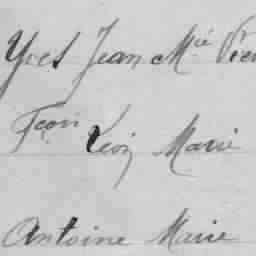 Yves Jean Mie
Fçois Léon Marie
Antoine Marie